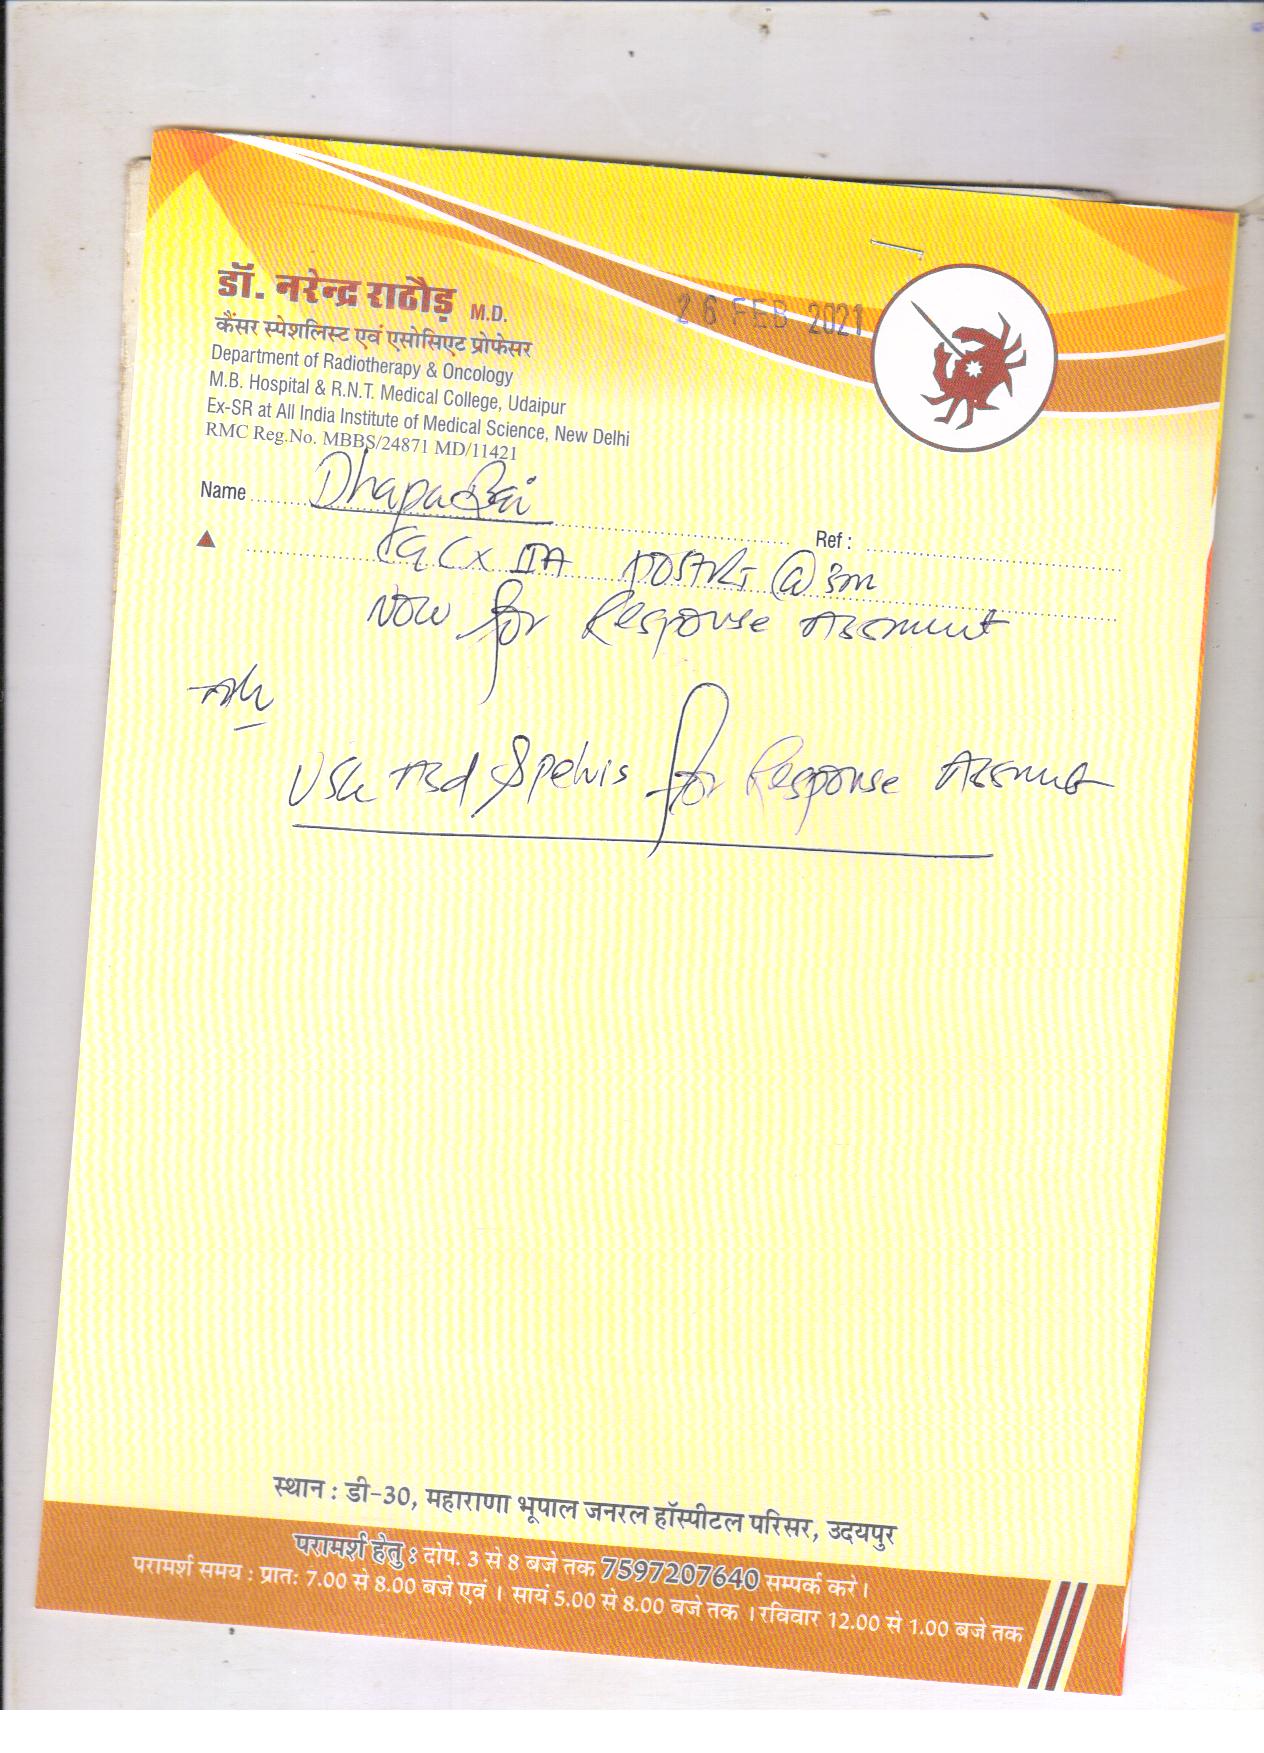 डॉ. नरेन्द्र राठौड़ M.D.
26 FEB 2021
कैंसर स्पेशलिस्ट एवं एसोसिएट प्रोफेसर
Department of Radiotherapy & Oncology
M.B. Hospital & R.N.T. Medical College, Udaipur
Ex-SR at All India Institute of Medical Science, New Delhi
RMC Reg.No. MBBS/24871 MD/11421
Name Dhapu Bai
Ref :
Ca Cx IIA POSTRT @ 3m
Now for Response
Adv
USG Abd & pelvis for Response
स्थान : डी-30, महाराणा भूपाल जनरल हॉस्पीटल परिसर, उदयपुर
परामर्श हेतु : दोप. 3 से 8 बजे तक 7597207640 सम्पर्क करे।
परामर्श समय : प्रातः 7.00 से 8.00 बजे एवं । सायं 5.00 से 8.00 बजे तक । रविवार 12.00 से 1.00 बजे तक